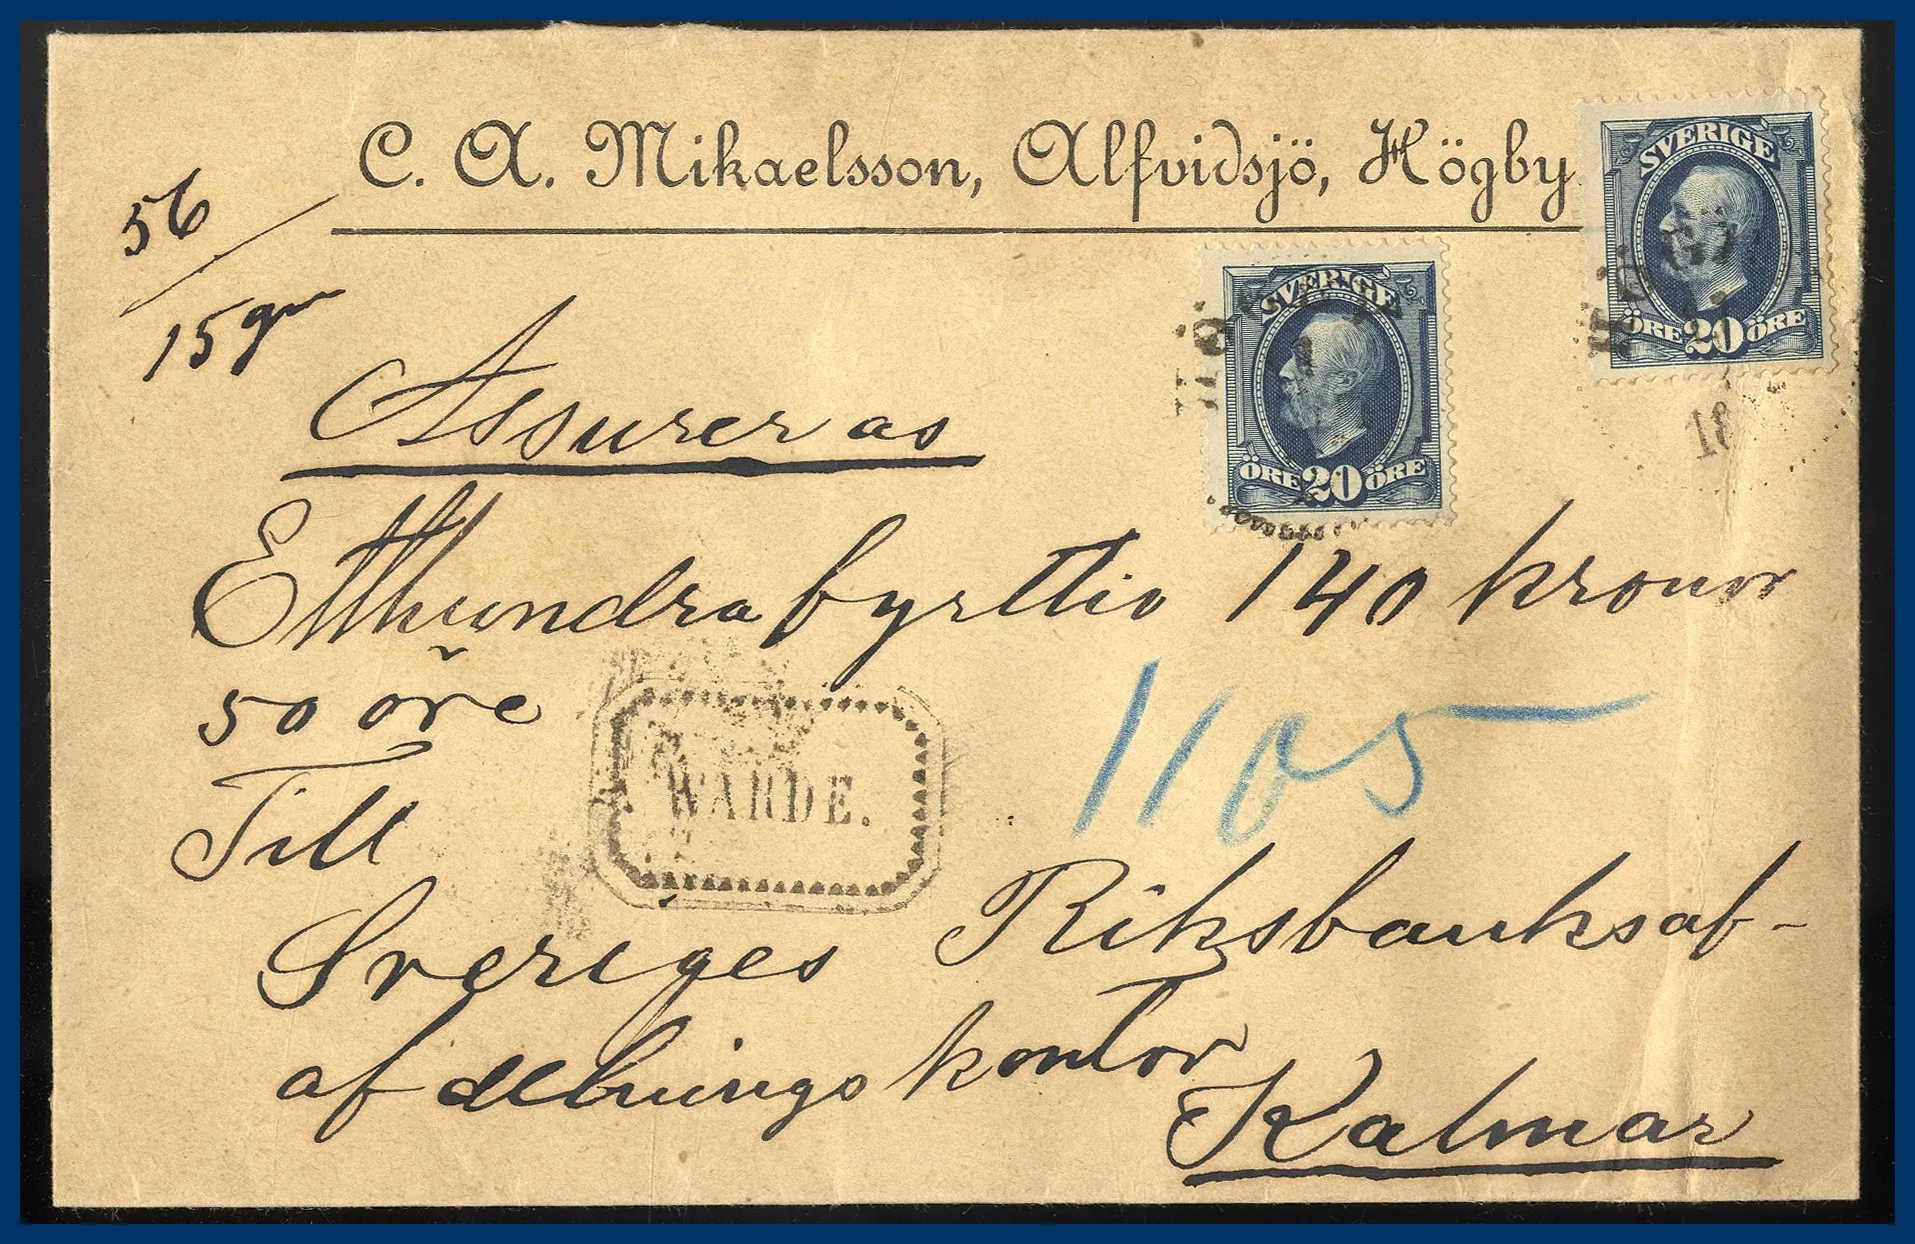 C. A. Mikaelsson, Alfvidsjö, Högby.
56
15 gr
Assureras
SVERIGE
ÖRE 20 ÖRE
SVERIGE
ÖRE 20 ÖRE
Etthundrafyrttio 140 kronor
50 öre
WÄRDE.
1105
Till
Sveriges Riksbanksaf-
afdelningskontor
Kalmar